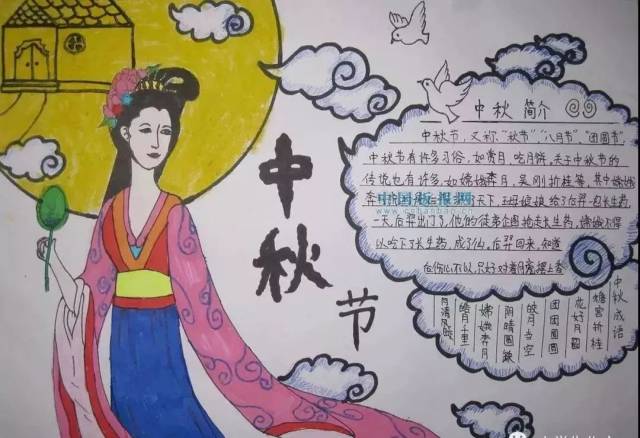 中秋节
中秋简介
中秋节，又称“秋节”“八月节”“团圆节”
中秋节有许多习俗，如赏月、吃月饼、关于中秋节的
传说也有许多，如嫦娥奔月，吴刚折桂等，其中嫦娥
奔月 后羿 天下，王母娘娘给了后羿一包长生药，
一天后羿出门了，他的徒弟企图抢走长生药，嫦娥不得
以吃下了长生药，成了仙，后羿回来，知道
后伤心不以，只好对着月亮摆上香
中国板报网
中秋成语
蟾宫折桂
花好月圆
团团圆圆
皓月当空
阴晴圆缺
嫦娥奔月
皓月千里
月清风